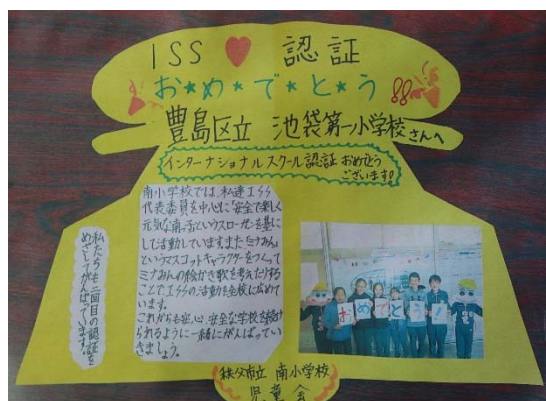 ISS ♥ 認証
お★め★で★とう!!
豊島区立 池袋第一小学校さんへ
インターナショナルスクール認証 おめでとう
ございます!
南小学校では、私達ISS
代表委員を中心に「安全で楽しく
元気な南っ子というスローガンを基に
して活動していますまた「ミナみん」
というマスコットキャラクターをつくって
ミナみんの絵かき歌を考えたりする
ことでISSの活動を全校に広めて
います。
これからも安心、安全な学校を続け
られるように一緒にがんばってい
きましょう。
私たちも二回目の認証を
めざしてがんばっています。
おめでとう!
秩父市立 南小学校
児童会